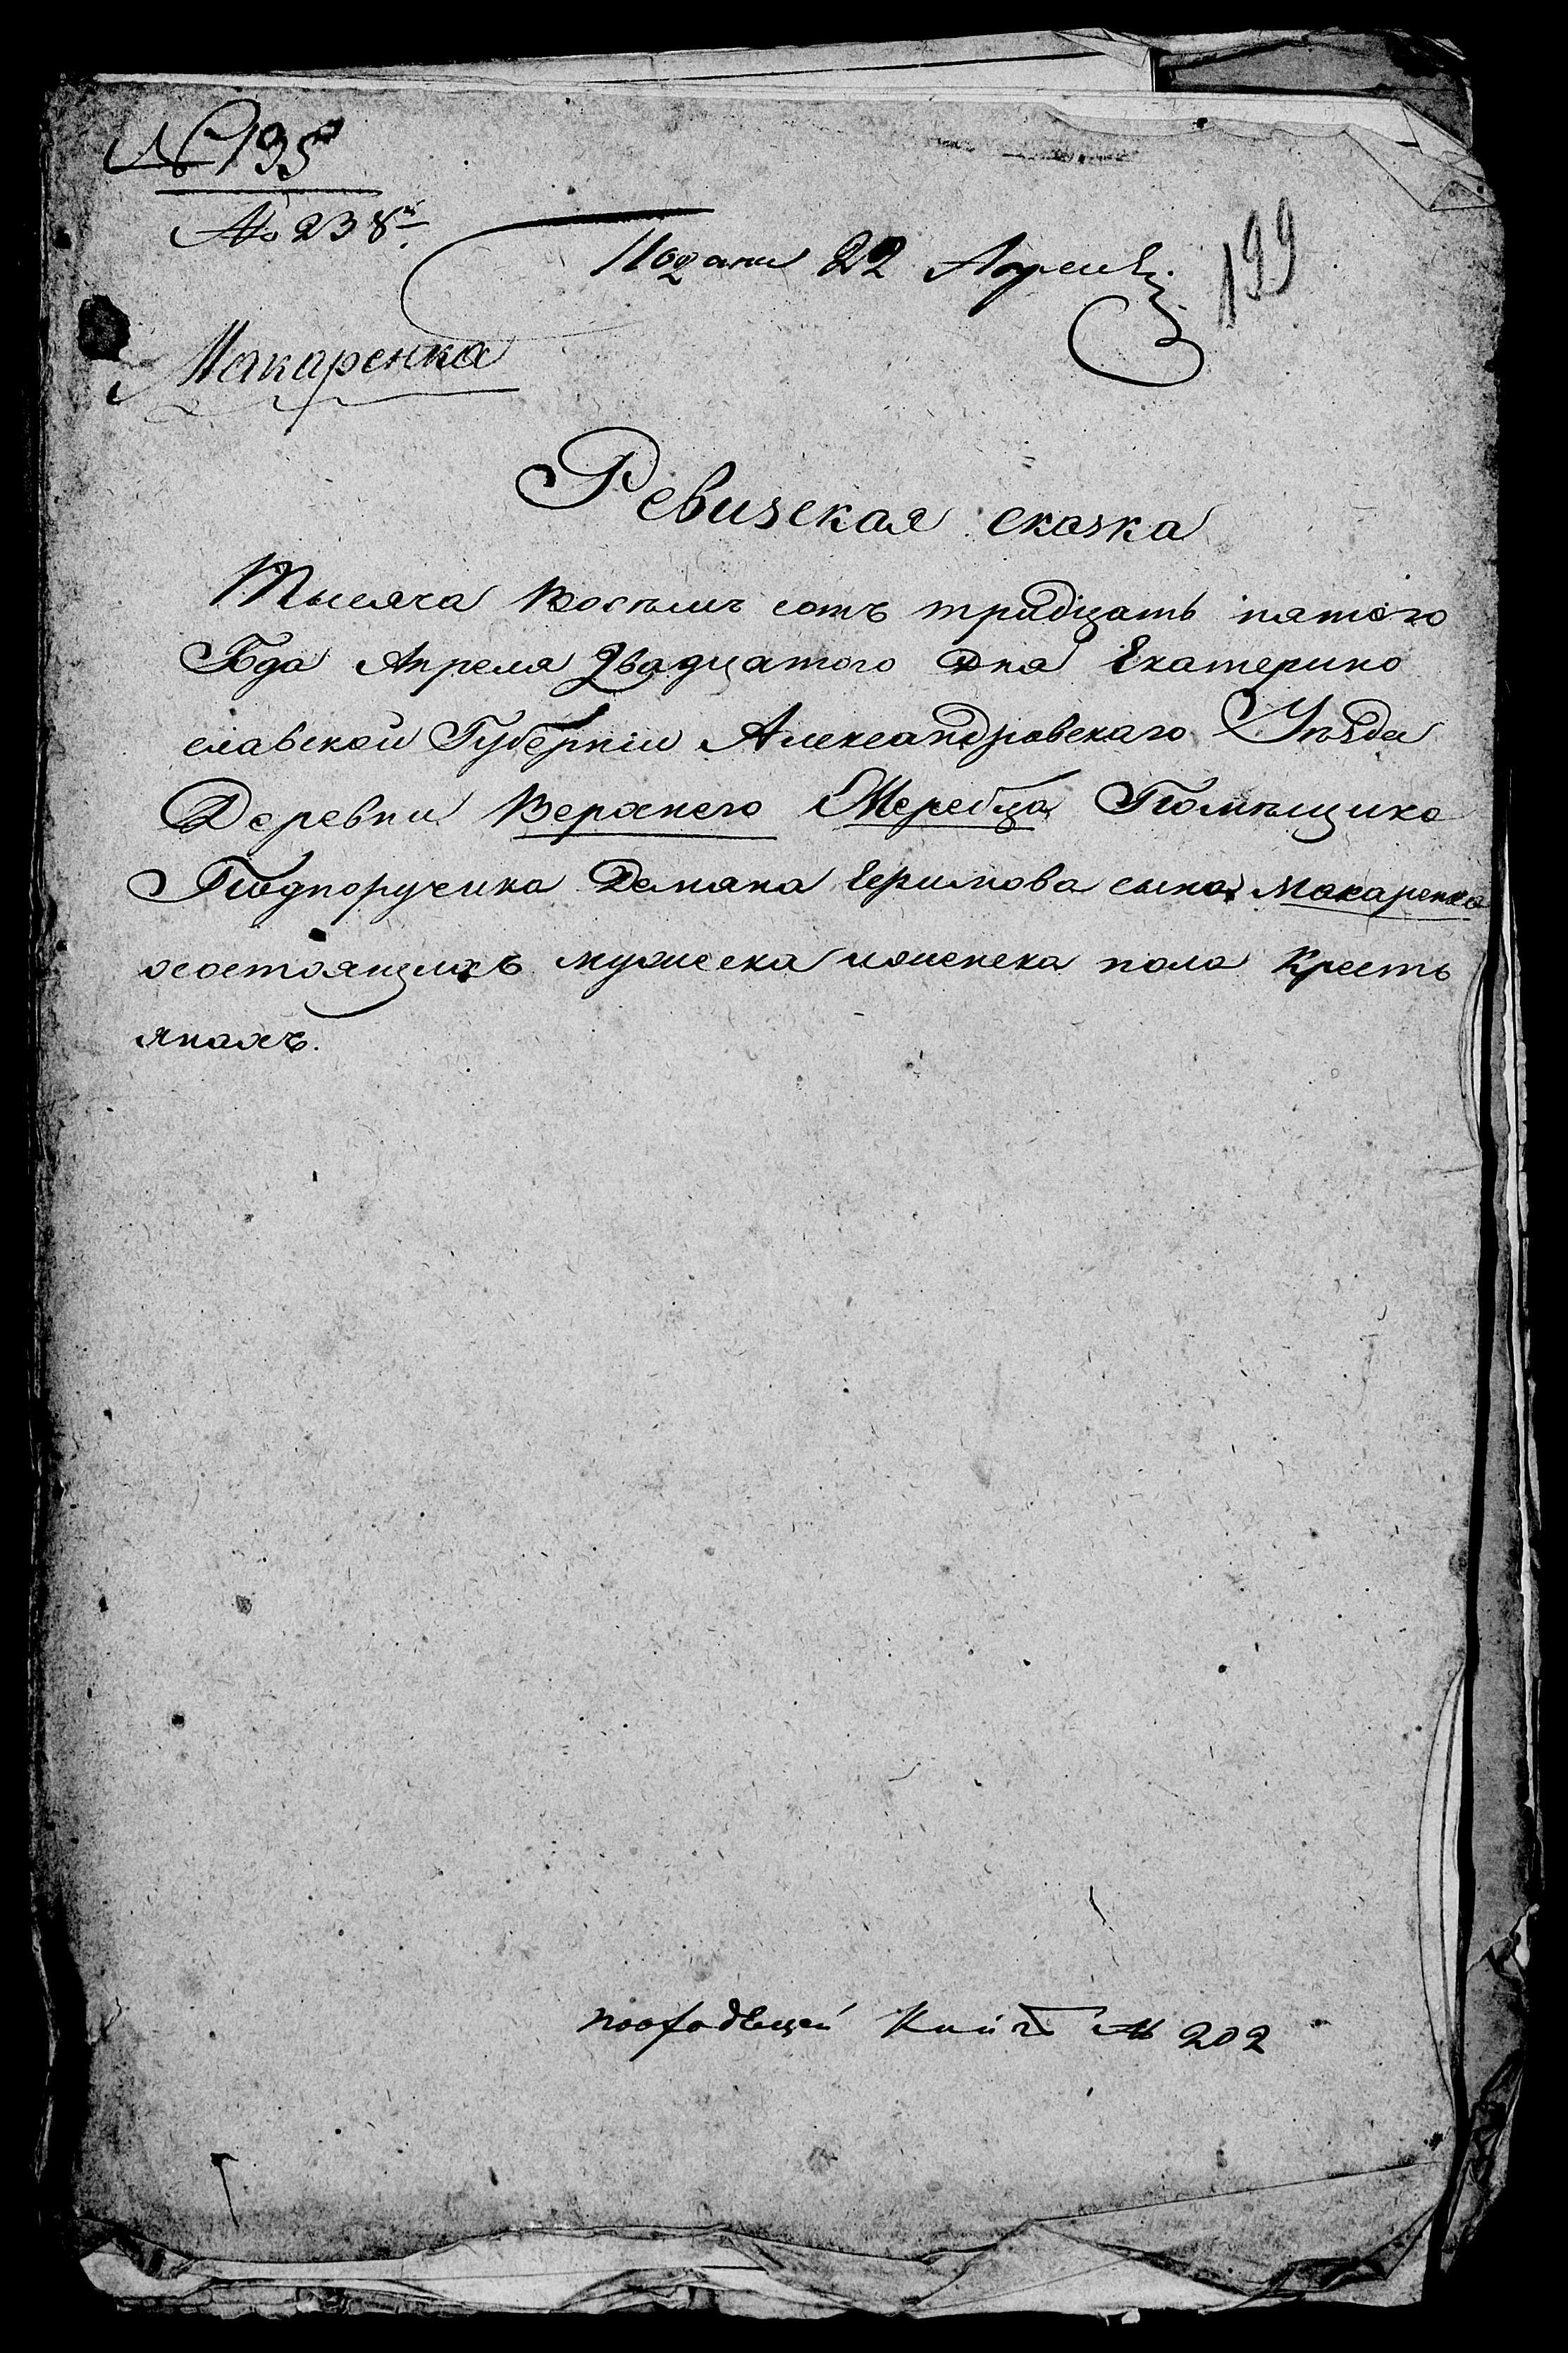 № 195
№ 238й
Подана 22 Апреля
199
Макаренка
Ревизская сказка
Тысяча восемь сотъ тридцать пятого
Года Апреля двадцатого дня Екатерино
славской Губерніи Александровскаго Уѣзда
Деревни Верхнего Теребца Помѣщика
Подпоручика Демяна Ефимова сына Макаренка
осостоящихъ мужеска иженска пола кресть
янахъ.
повходящей Книгѣ № 202